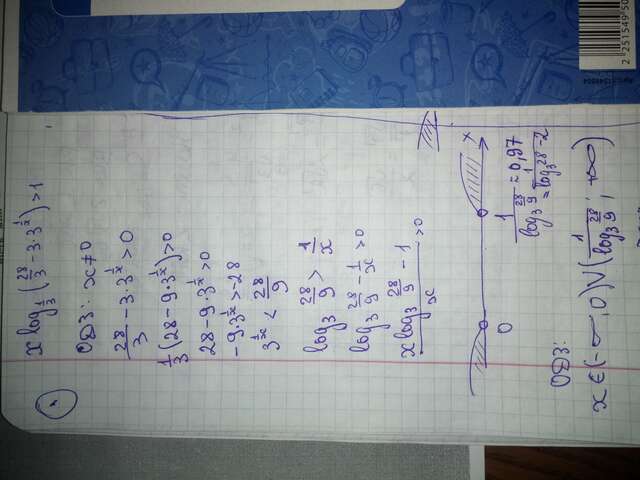 1
x log_{1/3} (28/3 - 3·3^{1/x}) > 1
ОДЗ: x ≠ 0
28/3 - 3·3^{1/x} > 0
1/3 (28 - 9·3^{1/x}) > 0
28 - 9·3^{1/x} > 0
-9·3^{1/x} > -28
3^{1/x} < 28/9
log_3 28/9 > 1/x
log_3 28/9 - 1/x > 0
(x log_3 28/9 - 1)/x > 0
0
x
1/(log_3 28/9) = 0,97
= 1/(log_3 28 - 2)
ОДЗ:
x ∈ (-∞; 0) ∪ (1/(log_3 28/9); +∞)